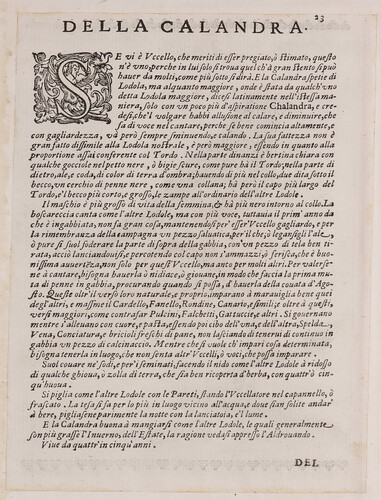 23
DELLA CALANDRA.
SE vi è Vccello, che meriti di esser pregiato, ò stimato, questo
n'è vno, perche in lui solo si troua quel ch'à gran stento si può
hauer da molti, come più sotto si dirà. E la Calandra spetie di
Lodola, ma alquanto maggiore, onde è stata da qualch'vno
detta Lodola maggiore, dicesi latinamente nell'istessa ma-
niera, solo con vn poco più d'aspiratione Chalandra, e cre-
desi, che'l volgare habbi allusione al calare, e diminuire, che
fa di voce nel cantare, perche, se bene comincia altamente, e
con gagliardezza, và però sempre sminuendo, e calando. La sua fattezza non è
gran fatto dissimile alla Lodola nostrale, è però maggiore, essendo in quanto alla
proportione assai conferente col Tordo. Nella parte dinanzi è bertina chiara con
qualche gocciole nel petto nere, ò bigie scure, come pure hà il Tordo; nella parte di
dietro, ale, e coda, di color di terra d'ombra; hauendo di più nel collo, due dita sotto il
becco, vn cerchio di penne nere, come vna collana; hà però il capo più largo del
Tordo, il becco più corto, e grosso, le zampe all'ordinario dell'altre Lodole.
Il maschio è più grosso di vita della femmina, & hà più nero intorno al collo. La
boscareccia canta come l'altre Lodole, ma con più voce, tuttauia il prim'anno da
che è ingabbiata, non fa gran cosa, mantenendosi per'esser Vccello gagliardo, e per
la rimembranza della campagna vn pezzo saluatica, per il che, ò legansegli l'ale,
ò pure si suol foderare la parte di sopra della gabbia, con'vn pezzo di tela ben ti-
rata, acciò lanciandouisi, e percotendo col capo non s'ammazzi, ò ferisca, che è buo-
nissima auuertiza, non solo per quest'Vccello, ma anco per molti altri. Per valerse-
ne à cantare, bisogna hauerla ò nidiace, ò giouane, in modo che faccia la prima mu-
ta di penne in gabbia, procurando quando si possa, d'hauerla della couata d'Ago-
sto. Queste oltr'il verso loro naturale, e proprio, imparano à marauiglia bene quei
degl'altri, e massime il Cardello, Fanello, Rondine, Canario, e simili; e oltre à questi,
versi maggiori, come contrafar Pulcini, Falchetti, Gattuccie, e altri. Si gouernano
mentre s'alleuano con cuore, e pasta, essendo poi cibo dell'vna, e dell'altra, Spelda,
Vena, Conciatura, e bricioli freschi di pane, non lasciando di tenerui di continuo in
gabbia vn pezzo di calcinaccio. Mentre che si vuole ch'impari cosa determinata,
bisogna tenerla in luogo, che non senta altr'Vccelli, ò voci, che possa imparare.
Suol couare ne' sodi, e per i seminati, facendo il nido come l'altre Lodole à ridosso
di qualche ghioua, ò zolla di terra, che sia ben ricoperta d'herba, con quattr'ò cin-
qu'huoua.
Si piglia come l'altre Lodole con le Pareti, stando l'Vccellatore nel capannello, ò
frascato. La tesa si fa per lo più in luogo vicino all'acqua, doue sian solite andar'à
bere, pigliasene parimente la notte con la lanciatoia, e'l lume.
E la Calandra buona à mangiarsi come l'altre Lodole, le quali generalmente
son più grasse l'Inuerno, dell'Estate, la ragione vedasi appresso l'Aldrouando.
Viue da quattr'in cinqu'anni.
DEL